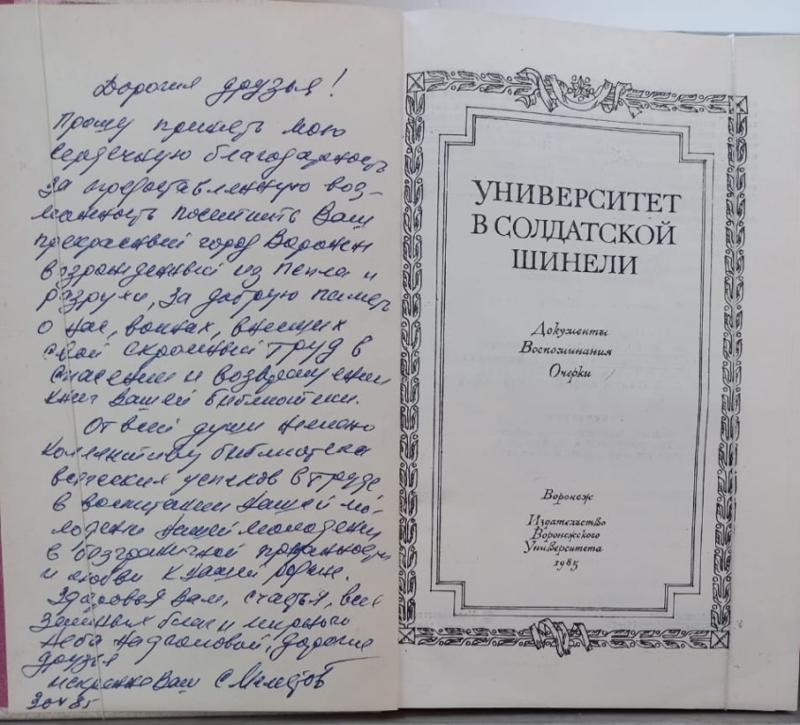 Дорогие друзья!
Прошу принять мою
сердечную благодарность
за предоставленную воз-
можность посетить Ваш
прекрасный город Воронеж
возрожденный из пепла и
разрухи, за добрую память
о нас, воинах, внесших
свой скромный труд в
спасении и возвращении
книг Вашей библиотеки.
От всей души желаю
коллективу библиотеки
всяческих успехов в труде
в воспитании нашей мо-
лодежи нашей молодежи
в безграничной преданности
и любви к нашей родине.
Здоровья Вам, счастья, всех
земных благ и мирного
неба над головой, дорогие
друзья
искренно Ваш С
УНИВЕРСИТЕТ
В СОЛДАТСКОЙ
ШИНЕЛИ
Документы
Воспоминания
Очерки
Воронеж
Издательство
Воронежского
Университета
1985